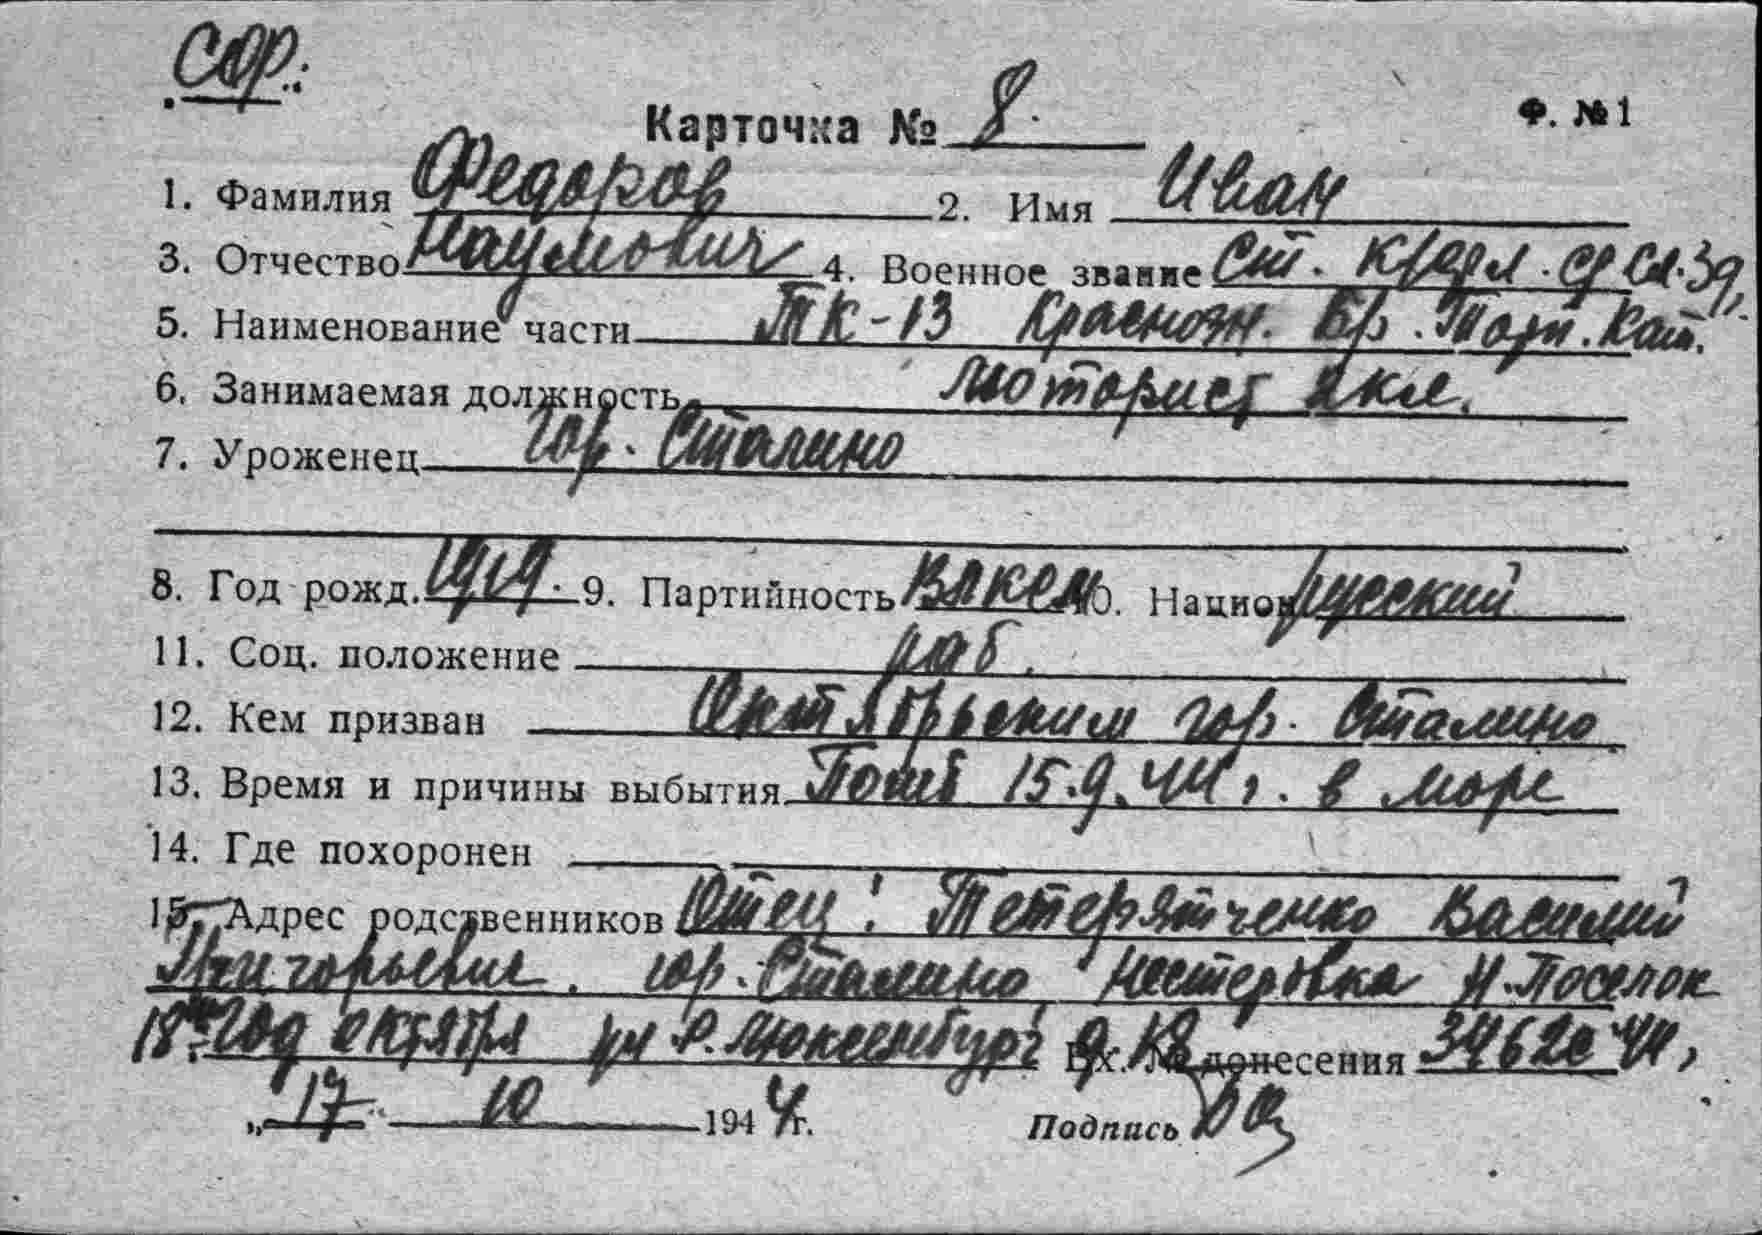 СФ
Карточка № 8. Ф. № 1
1. Фамилия Федоров 2. Имя Иван
3. Отчество Наумович 4. Военное звание Ст. кр-фл. ср сл.
5. Наименование части ТК-13 Краснозн. Бр. Торп. Кат.
6. Занимаемая должность моторист
7. Уроженец гор. Сталино
8. Год рожд. 1919. 9. Партийность ВЛКСМ 10. Национ русский
11. Соц. положение раб.
12. Кем призван Октябрьским гор. Сталино
13. Время и причины выбытия Погиб 15.9.44 г. в море
14. Где похоронен
15. Адрес родственников Отец: Тетерятченко Василий
Григорьевич. гор. Сталино Нестеровка Н. Поселок
18 год октября ул Р. Люксембург д. 18 Вх. № донесения 34620 44,
„17" 10 1944 г. Подпись